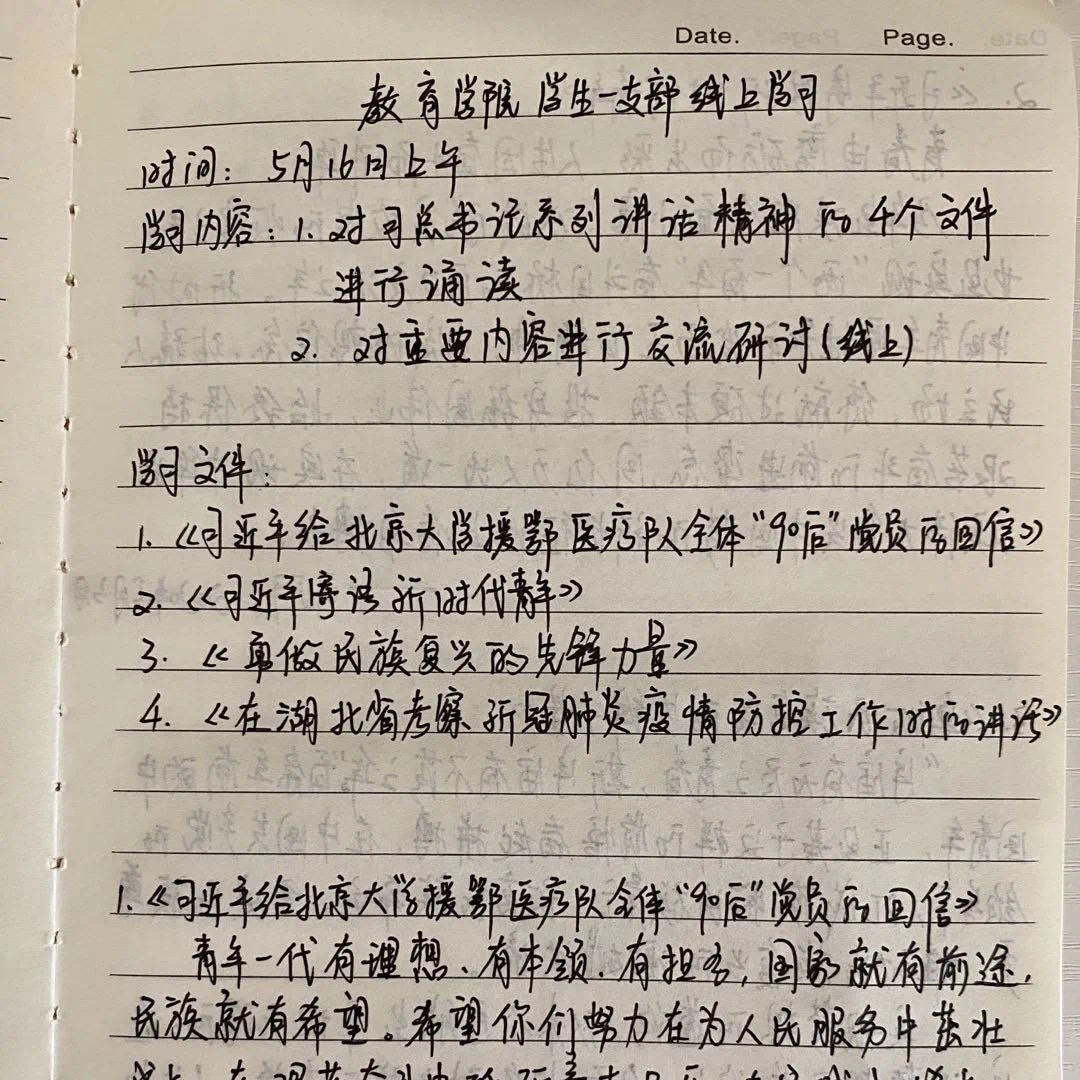 Date. Page.
教育学院学生一支部线上学习
时间：5月16日上午
学习内容：1.对习总书记系列讲话精神的4个文件
进行诵读
2.对重要内容进行交流研讨(线上)
学习文件：
1.《习近平给北京大学援鄂医疗队全体“90后”党员的回信》
2.《习近平寄语新时代青年》
3.《勇做民族复兴的先锋力量》
4.《在湖北省考察新冠肺炎疫情防控工作时的讲话》
1.《习近平给北京大学援鄂医疗队全体“90后”党员的回信》
青年一代有理想、有本领、有担当，国家就有前途，
民族就有希望。希望你们努力在为人民服务中茁壮